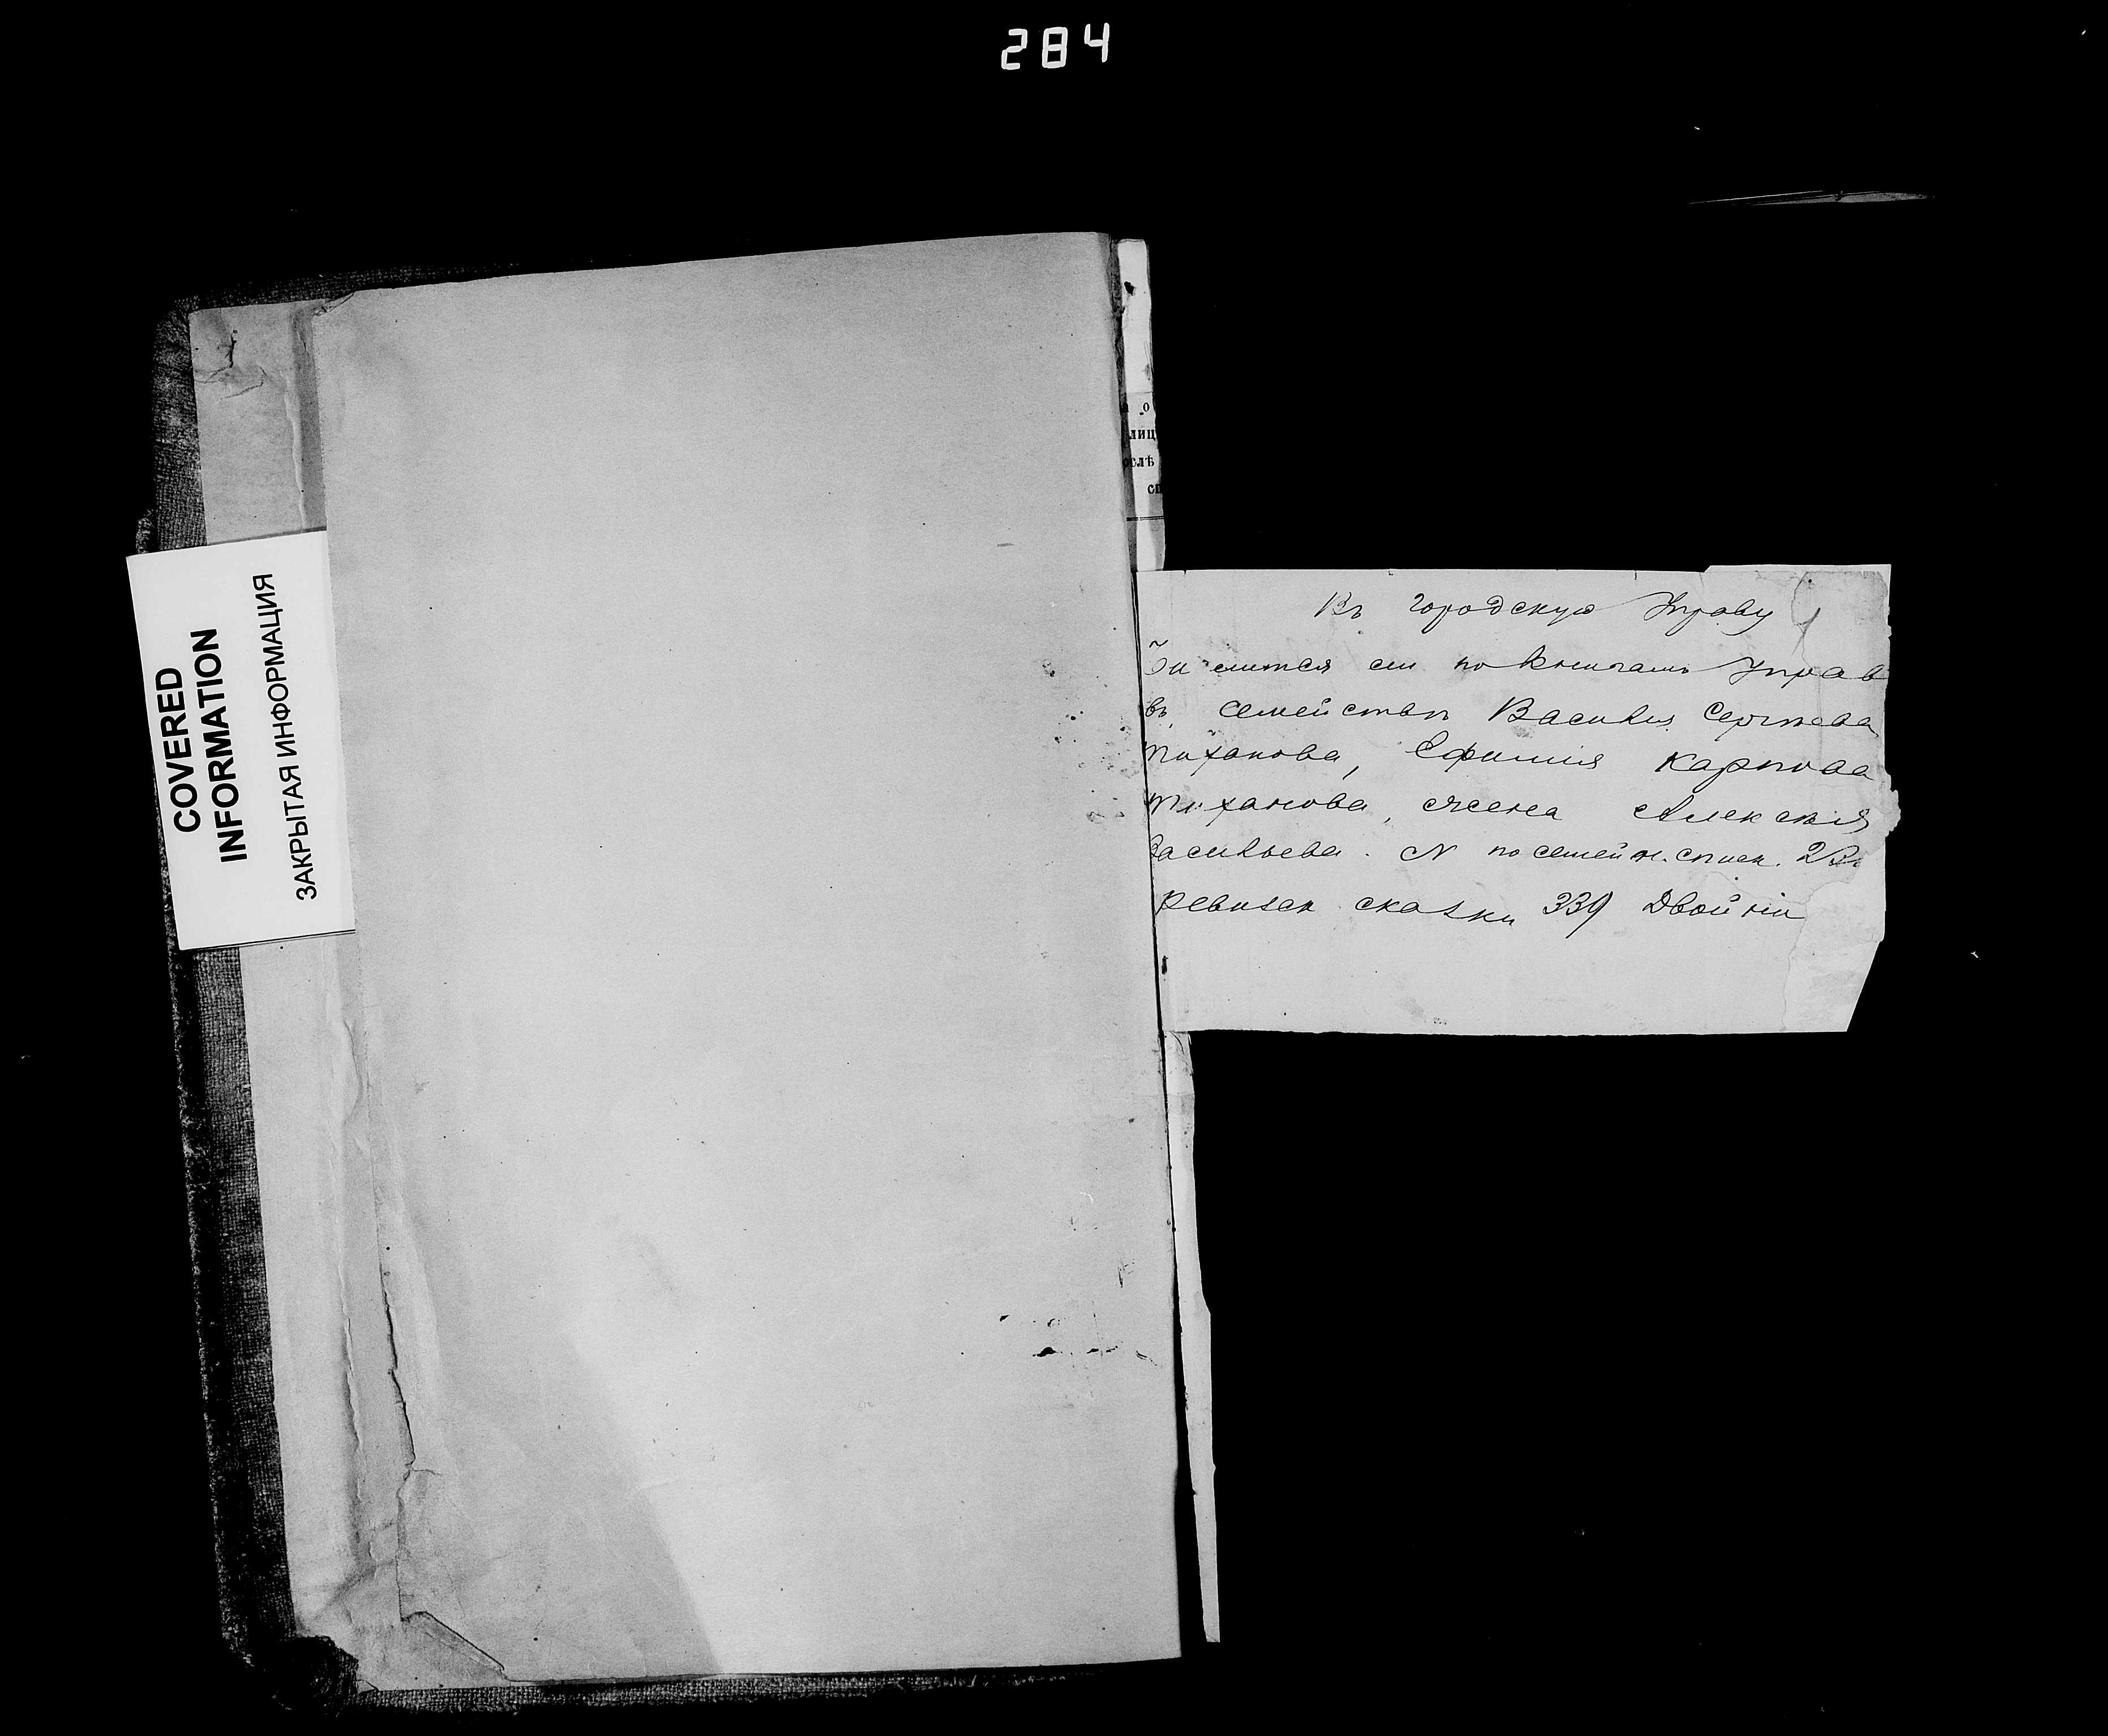 284
COVERED
INFORMATION
ЗАКРЫТАЯ ИНФОРМАЦИЯ
о
лиц
ослѣ
сп
Въ городскую Управу
числится ли по книгамъ Управ
въ семействѣ Василия Сергѣева
Тиханова, Ефимия Карпова
Тиханова, жена Алексѣя
Васильева. N по семейн. списк.
ревизск сказки 339 Двойни